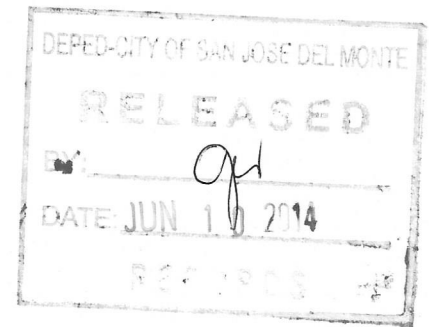 DEPED-CITY OF SAN JOSE DEL MONTE
RELEASED
BY:
DATE: JUN 10 2014
RECORDS